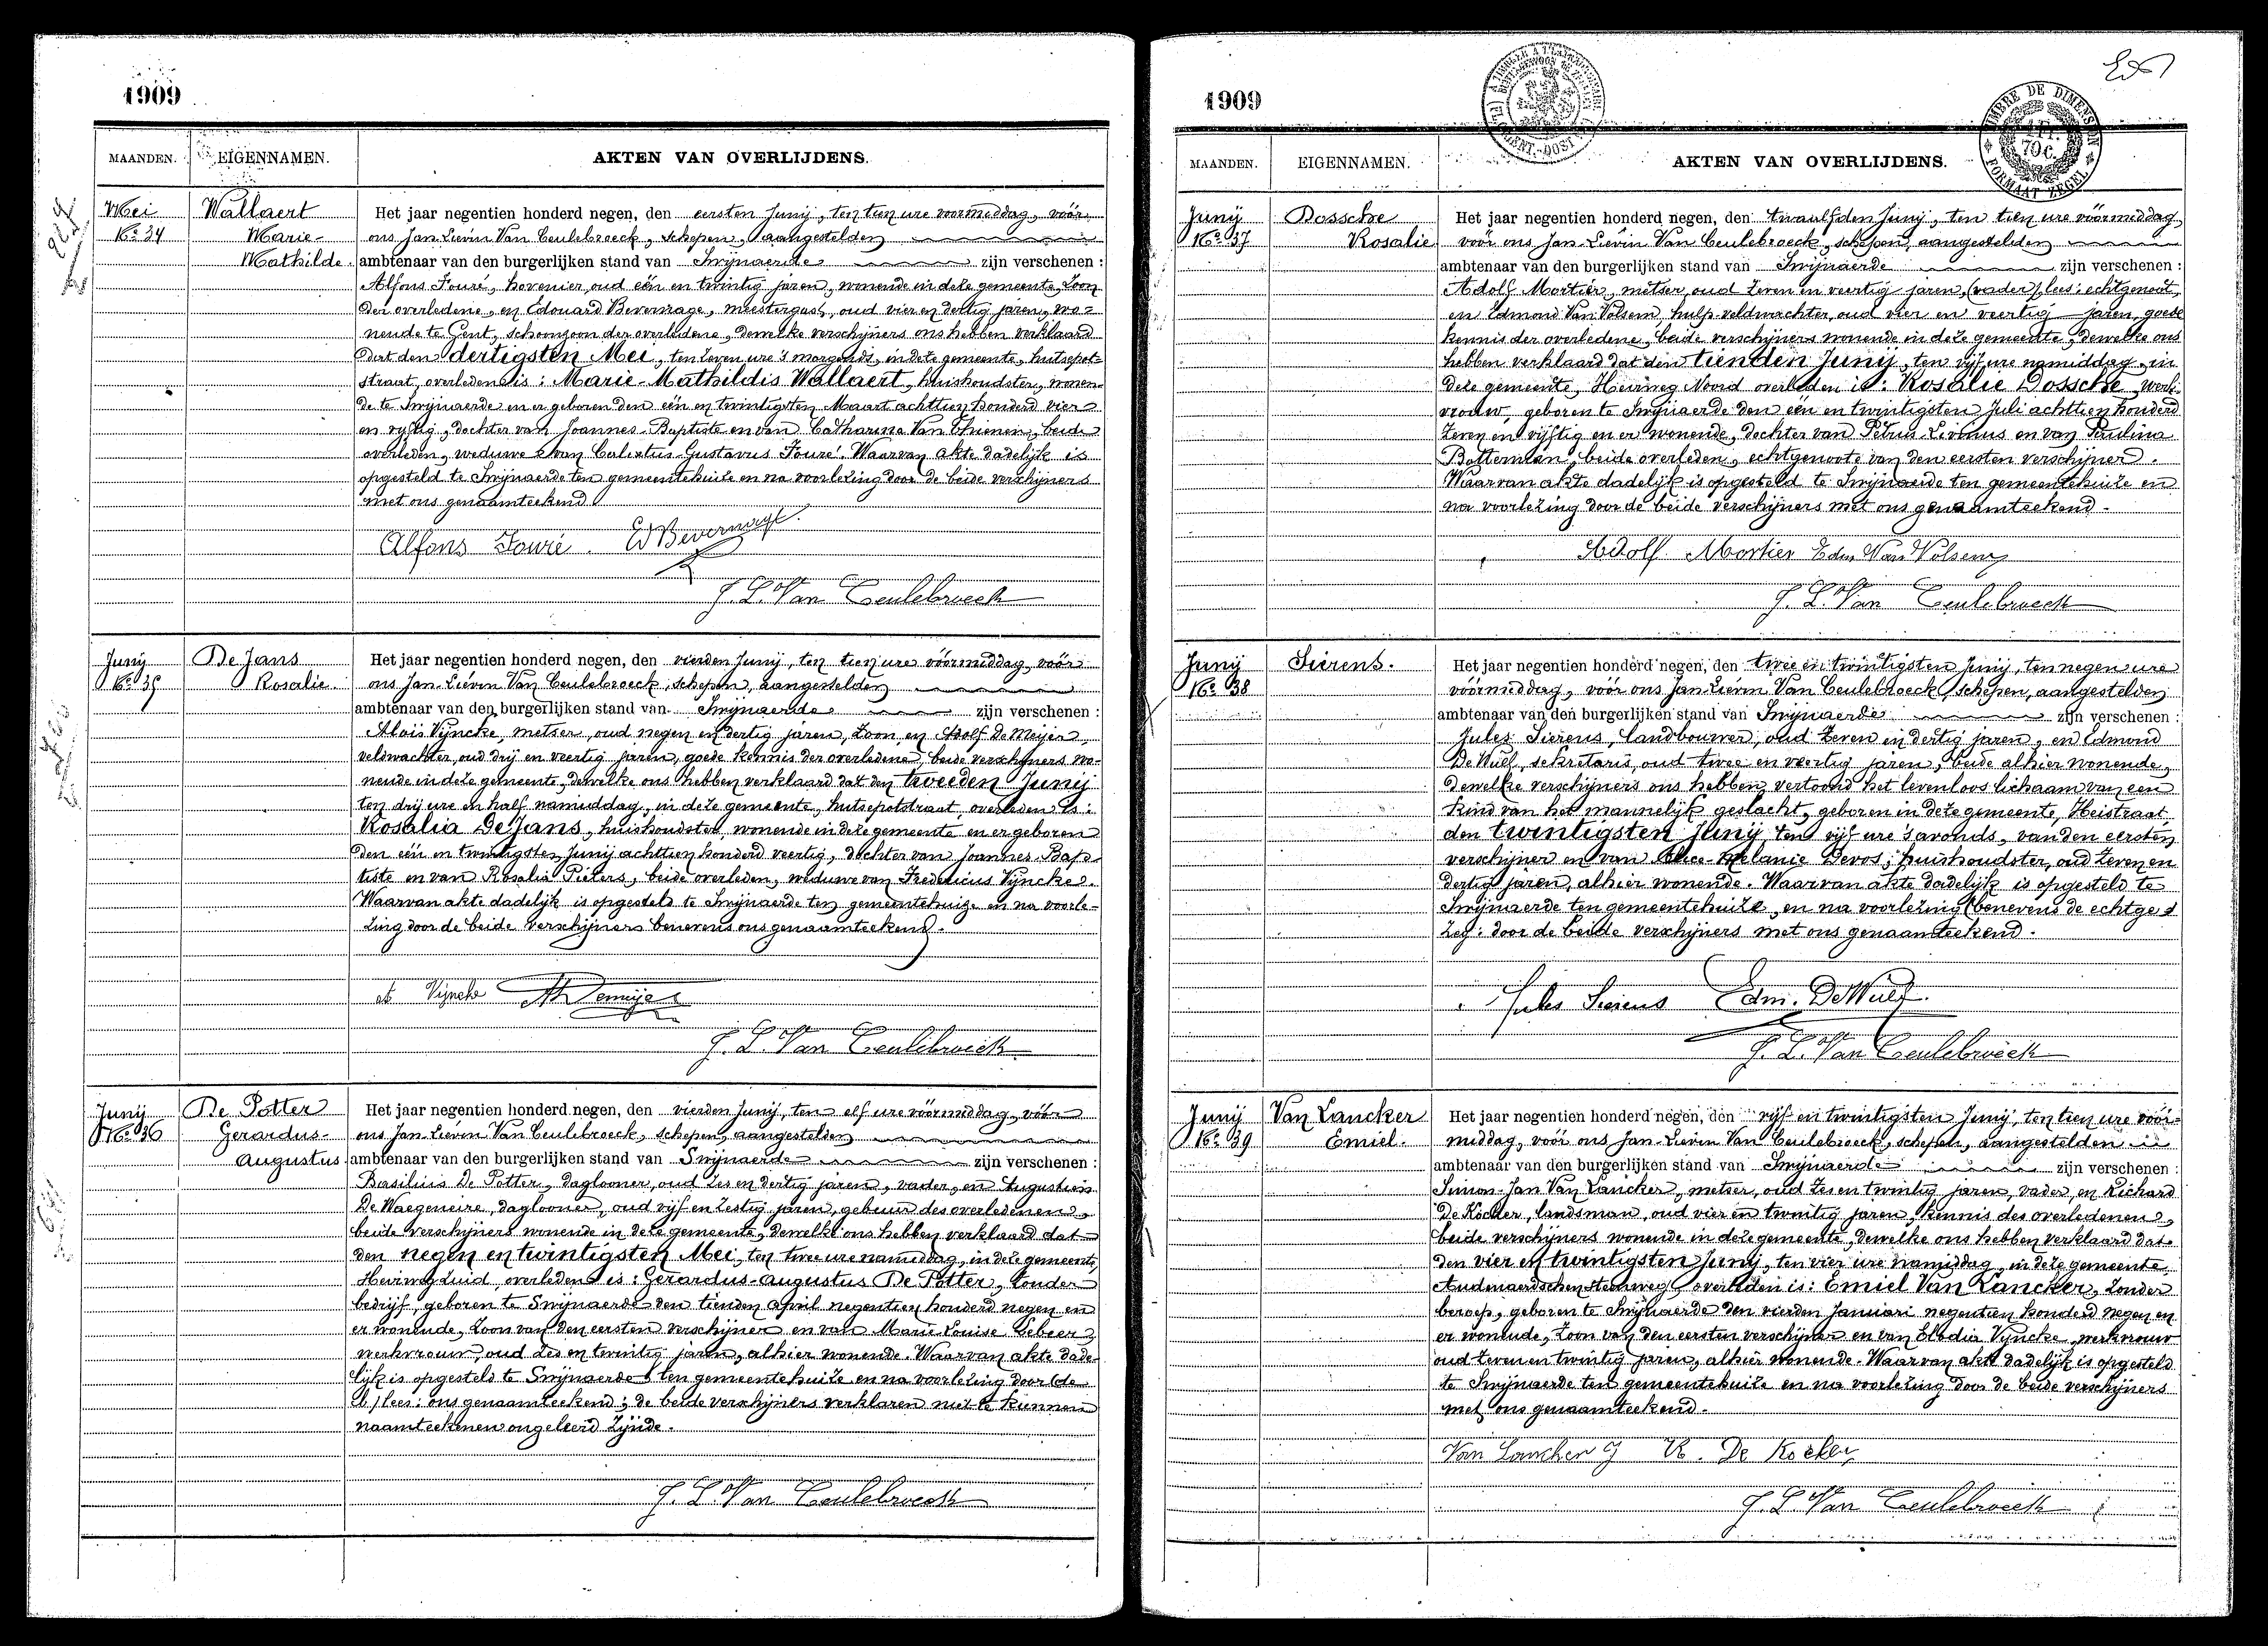 1909
MAANDEN. EIGENNAMEN. AKTEN VAN OVERLIJDENS.
Mei
No 34
Wallaert
Marie-
Mathilde
Het jaar negentien honderd negen, den eersten Junij, ten tien ure voormiddag, vóór
ons Jan-Lievin Van Ceulebroeck, schepen, aangestelden
ambtenaar van den burgerlijken stand van Swijnaerde zijn verschenen :
Alfons Fouré, hovenier, oud één en twintig jaren, wonende in deze gemeente, zoon
der overledene, en Edouard Bevernage, meestergast, oud vier en dertig jaren, wo-
nende te Gent, schoonzoon der overledene, dewelke verschijners ons hebben verklaard
dat den dertigsten Mei, ten zeven ure 's morgends, in deze gemeente, hutsepot-
straat, overleden is : Marie-Mathildis Wallaert, huishoudster, wonen-
de te Swijnaerde en er geboren den één en twintigsten Maart achttien honderd vier
en vijftig, dochter van Joannes-Baptiste en van Catharina Van Thuenen, beide
overleden, weduwe van Calixtus-Gustavus Fouré. Waarvan akte dadelijk is
opgesteld te Swijnaerde ten gemeentehuize en na voorlezing door de beide verschijners
met ons genaamteekend
Alfons Fouré. Ed Bevernage.
J. L. Van Ceulebroeck
Junij
No 35
De Jans
Rosalie
Het jaar negentien honderd negen, den vierden Junij, ten tien ure vóórmiddag, vóór
ons Jan-Lievin Van Ceulebroeck, schepen, aangestelden
ambtenaar van den burgerlijken stand van Swijnaerde zijn verschenen :
Alois Vijncke, metser, oud negen en dertig jaren, zoon, en Adolf De Meijer,
veldwachter, oud drij en veertig jaren, goede kennis der overledene, beide verschijners wo-
nende in deze gemeente, dewelke ons hebben verklaard dat den tweeden Junij
ten drij ure en half namiddag, in deze gemeente, hutsepotstraat, overleden is :
Rosalia De Jans, huishoudster, wonende in deze gemeente en er geboren
den één en twintigsten Junij achttien honderd veertig, dochter van Joannes-Bap-
tiste en van Rosalia Pieters, beide overleden, weduwe van Fredericus Vijncke.
Waarvan akte dadelijk is opgesteld te Swijnaerde ten gemeentehuize en na voorle-
zing door de beide verschijners benevens ons genaamteekend.
Vijncke Ad Demeijer
J. L. Van Ceulebroeck
Junij
No 36
De Potter
Gerardus-
Augustus
Het jaar negentien honderd negen, den vierden Junij, ten elf ure vóórmiddag, vóór
ons Jan-Lievin Van Ceulebroeck, schepen, aangestelden
ambtenaar van den burgerlijken stand van Swijnaerde zijn verschenen :
Basilius De Potter, daglooner, oud zes en dertig jaren, vader, en Augustinis
De Waegeneire, daglooner, oud vijf en zestig jaren, gebuur des overledenen,
beide verschijners wonende in deze gemeente, dewelke ons hebben verklaard dat
den negen en twintigsten Mei, ten twee ure namiddag, in deze gemeente,
Heirweg Zuid, overleden is : Gerardus-Augustus De Potter, zonder
bedrijf, geboren te Swijnaerde den tienden April negentien honderd negen en
er wonende, zoon van den eersten verschijner en van Marie-Louise Lebeer,
werkvrouw, oud zes en twintig jaren, alhier wonende. Waarvan akte dade-
lijk is opgesteld te Swijnaerde ten gemeentehuize en na voorlezing door (de
b) lees: ons genaamteekend; de beide verschijners verklaren niet te kunnen
naamteekenen ongeleerd zijnde.
J. L. Van Ceulebroeck
1909
MAANDEN. EIGENNAMEN. AKTEN VAN OVERLIJDENS.
TIMBRE DE DIMENSION
FORMAAT ZEGEL
Junij
No 37
Dossche
Rosalie
Het jaar negentien honderd negen, den twaalfden Junij, ten tien ure vóórmiddag,
vóór ons Jan-Lievin Van Ceulebroeck, schepen, aangestelden
ambtenaar van den burgerlijken stand van Swijnaerde zijn verschenen :
Adolf Mortier, metser, oud zeven en veertig jaren, (vader) lees: echtgenoot,
en Edmond Van Volsem, hulp-veldwachter, oud vier en veertig jaren, goede
kennis der overledene, beide verschijners wonende in deze gemeente, dewelke ons
hebben verklaard dat den tienden Junij, ten vijf ure namiddag, in
deze gemeente, Heirweg Noord overleden is : Rosalie Dossche, werk-
vrouw, geboren te Swijnaerde den één en twintigsten Juli achttien honderd
zeven en vijftig en er wonende, dochter van Petrus-Livinus en van Paulina
Botterman, beide overleden, echtgenoote van den eersten verschijner.
Waarvan akte dadelijk is opgesteld te Swijnaerde ten gemeentehuize en
na voorlezing door de beide verschijners met ons genaamteekend.
Adolf Mortier Edm Van Volsem
J. L. Van Ceulebroeck
Junij
No 38
Sierens.
Het jaar negentien honderd negen, den twee en twintigsten Junij, ten negen ure
vóórmiddag, vóór ons Jan-Lievin Van Ceulebroeck, schepen, aangestelden
ambtenaar van den burgerlijken stand van Swijnaerde zijn verschenen :
Jules Sierens, landbouwer, oud zeven en dertig jaren, en Edmond
De Wulf, sekretaris, oud twee en veertig jaren, beide alhier wonende,
dewelke verschijners ons hebben vertoond het levenloos lichaam van een
kind van het mannelijk geslacht, geboren in deze gemeente, Heistraat,
den twintigsten Junij, ten vijf ure 's avonds, van den eersten
verschijner en van Alice-Melanie Devos, huishoudster, oud zeven en
dertig jaren, alhier wonende. Waarvan akte dadelijk is opgesteld te
Swijnaerde ten gemeentehuize, en na voorlezing (benevens de echtge)
zeg: door de beide verschijners met ons genaamteekend.
Jules Sierens Edm. De Wulf.
J. L. Van Ceulebroeck
Junij
No 39
Van Lancker
Emiel.
Het jaar negentien honderd negen, den vijf en twintigsten Junij, ten tien ure vóór-
middag, vóór ons Jan-Lievin Van Ceulebroeck, schepen, aangestelden
ambtenaar van den burgerlijken stand van Swijnaerde zijn verschenen :
Simon-Jan Van Lancker, metser, oud zes en twintig jaren, vader, en Richard
De Kocker, landsman, oud vier en twintig jaren, kennis des overledenen,
beide verschijners wonende in deze gemeente, dewelke ons hebben verklaard dat
den vier en twintigsten Junij, ten vier ure namiddag, in deze gemeente
Audenaerdschen steenweg, overleden is : Emiel Van Lancker, zonder
beroep, geboren te Swijnaerde den vierden Januari negentien honderd negen en
er wonende, zoon van den eersten verschijner en van Elodia Vijncke, werkvrouw
oud zeven en twintig jaren, alhier wonende. Waarvan akte dadelijk is opgesteld
te Swijnaerde ten gemeentehuize en na voorlezing door de beide verschijners
met ons genaamteekend.
Van Lancker J R. De Kocker
J. L. Van Ceulebroeck